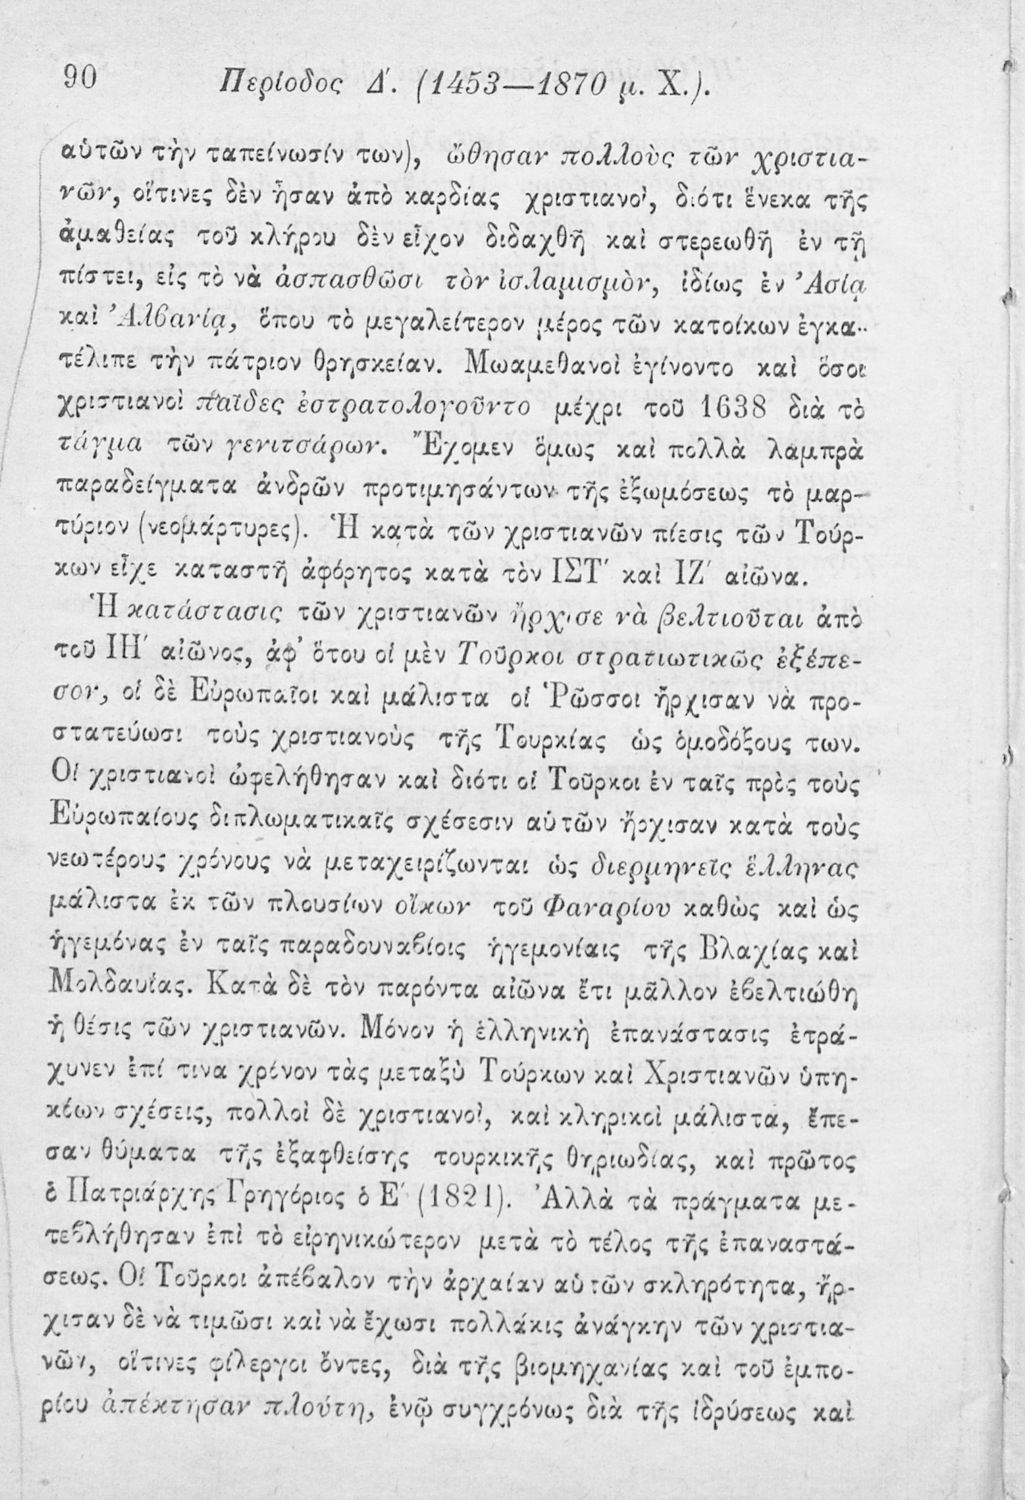 90 Περίοδος Δʹ. (1453—1870 μ. Χ.).
αὐτῶν τὴν ταπείνωσίν των), ὤθησαν πολλοὺς τῶν χριστια-
νῶν, οἵτινες δὲν ἦσαν ἀπὸ καρδίας χριστιανοί, διότι ἕνεκα τῆς
ἀμαθείας τοῦ κλήρου δὲν εἶχον διδαχθῆ καὶ στερεωθῆ ἐν τῇ
πίστει, εἰς τὸ νὰ ἀσπασθῶσι τὸν ἰσλαμισμὸν, ἰδίως ἐν Ἀσίᾳ
καὶ Ἀλβανίᾳ, ὅπου τὸ μεγαλείτερον μέρος τῶν κατοίκων ἐγκα-
τέλιπε τὴν πάτριον θρησκείαν. Μωαμεθανοὶ ἐγίνοντο καὶ ὅσοι
χριστιανοὶ παῖδες ἐστρατολογοῦντο μέχρι τοῦ 1638 διὰ τὸ
τάγμα τῶν γενιτσάρων. Ἔχομεν ὅμως καὶ πολλὰ λαμπρὰ
παραδείγματα ἀνδρῶν προτιμησάντων τῆς ἐξωμόσεως τὸ μαρ-
τύριον (νεομάρτυρες). Ἡ κατὰ τῶν χριστιανῶν πίεσις τῶν Τούρ-
κων εἶχε καταστῆ ἀφόρητος κατὰ τὸν ΙΣΤʹ καὶ ΙΖʹ αἰῶνα.
Ἡ κατάστασις τῶν χριστιανῶν ἤρχισε νὰ βελτιοῦται ἀπὸ
τοῦ ΙΗʹ αἰῶνος, ἀφ᾽ ὅτου οἱ μὲν Τοῦρκοι στρατιωτικῶς ἐξέπε-
σον, οἱ δὲ Εὐρωπαῖοι καὶ μάλιστα οἱ Ῥῶσσοι ἤρχισαν νὰ προ-
στατεύωσι τοὺς χριστιανοὺς τῆς Τουρκίας ὡς ὁμοδόξους των.
Οἱ χριστιανοὶ ὠφελήθησαν καὶ διότι οἱ Τοῦρκοι ἐν ταῖς πρὸς τοὺς
Εὐρωπαίους διπλωματικαῖς σχέσεσιν αὐτῶν ἤρχισαν κατὰ τοὺς
νεωτέρους χρόνους νὰ μεταχειρίζωνται ὡς διερμηνεῖς ἕλληνας
μάλιστα ἐκ τῶν πλουσίων οἴκων τοῦ Φαναρίου καθὼς καὶ ὡς
ἡγεμόνας ἐν ταῖς παραδουναβίοις ἡγεμονίαις τῆς Βλαχίας καὶ
Μολδαυΐας. Κατὰ δὲ τὸν παρόντα αἰῶνα ἔτι μᾶλλον ἐβελτιώθη
ἡ θέσις τῶν χριστιανῶν. Μόνον ἡ ἑλληνικὴ ἐπανάστασις ἐτρά-
χυνεν ἐπί τινα χρόνον τὰς μεταξὺ Τούρκων καὶ Χριστιανῶν ὑπη-
κόων σχέσεις, πολλοὶ δὲ χριστιανοί, καὶ κληρικοὶ μάλιστα, ἔπε-
σαν θύματα τῆς ἐξαφθείσης τουρκικῆς θηριωδίας, καὶ πρῶτος
ὁ Πατριάρχης Γρηγόριος ὁ Εʹ (1821). Ἀλλὰ τὰ πράγματα με-
τεβλήθησαν ἐπὶ τὸ εἰρηνικώτερον μετὰ τὸ τέλος τῆς ἐπαναστά-
σεως. Οἱ Τοῦρκοι ἀπέβαλον τὴν ἀρχαίαν αὐτῶν σκληρότητα, ἤρ-
χισαν δὲ νὰ τιμῶσι καὶ νὰ ἔχωσι πολλάκις ἀνάγκην τῶν χριστια-
νῶν, οἵτινες φίλεργοι ὄντες, διὰ τῆς βιομηχανίας καὶ τοῦ ἐμπο-
ρίου ἀπέκτησαν πλούτη, ἐνῷ συγχρόνως διὰ τῆς ἱδρύσεως καὶ